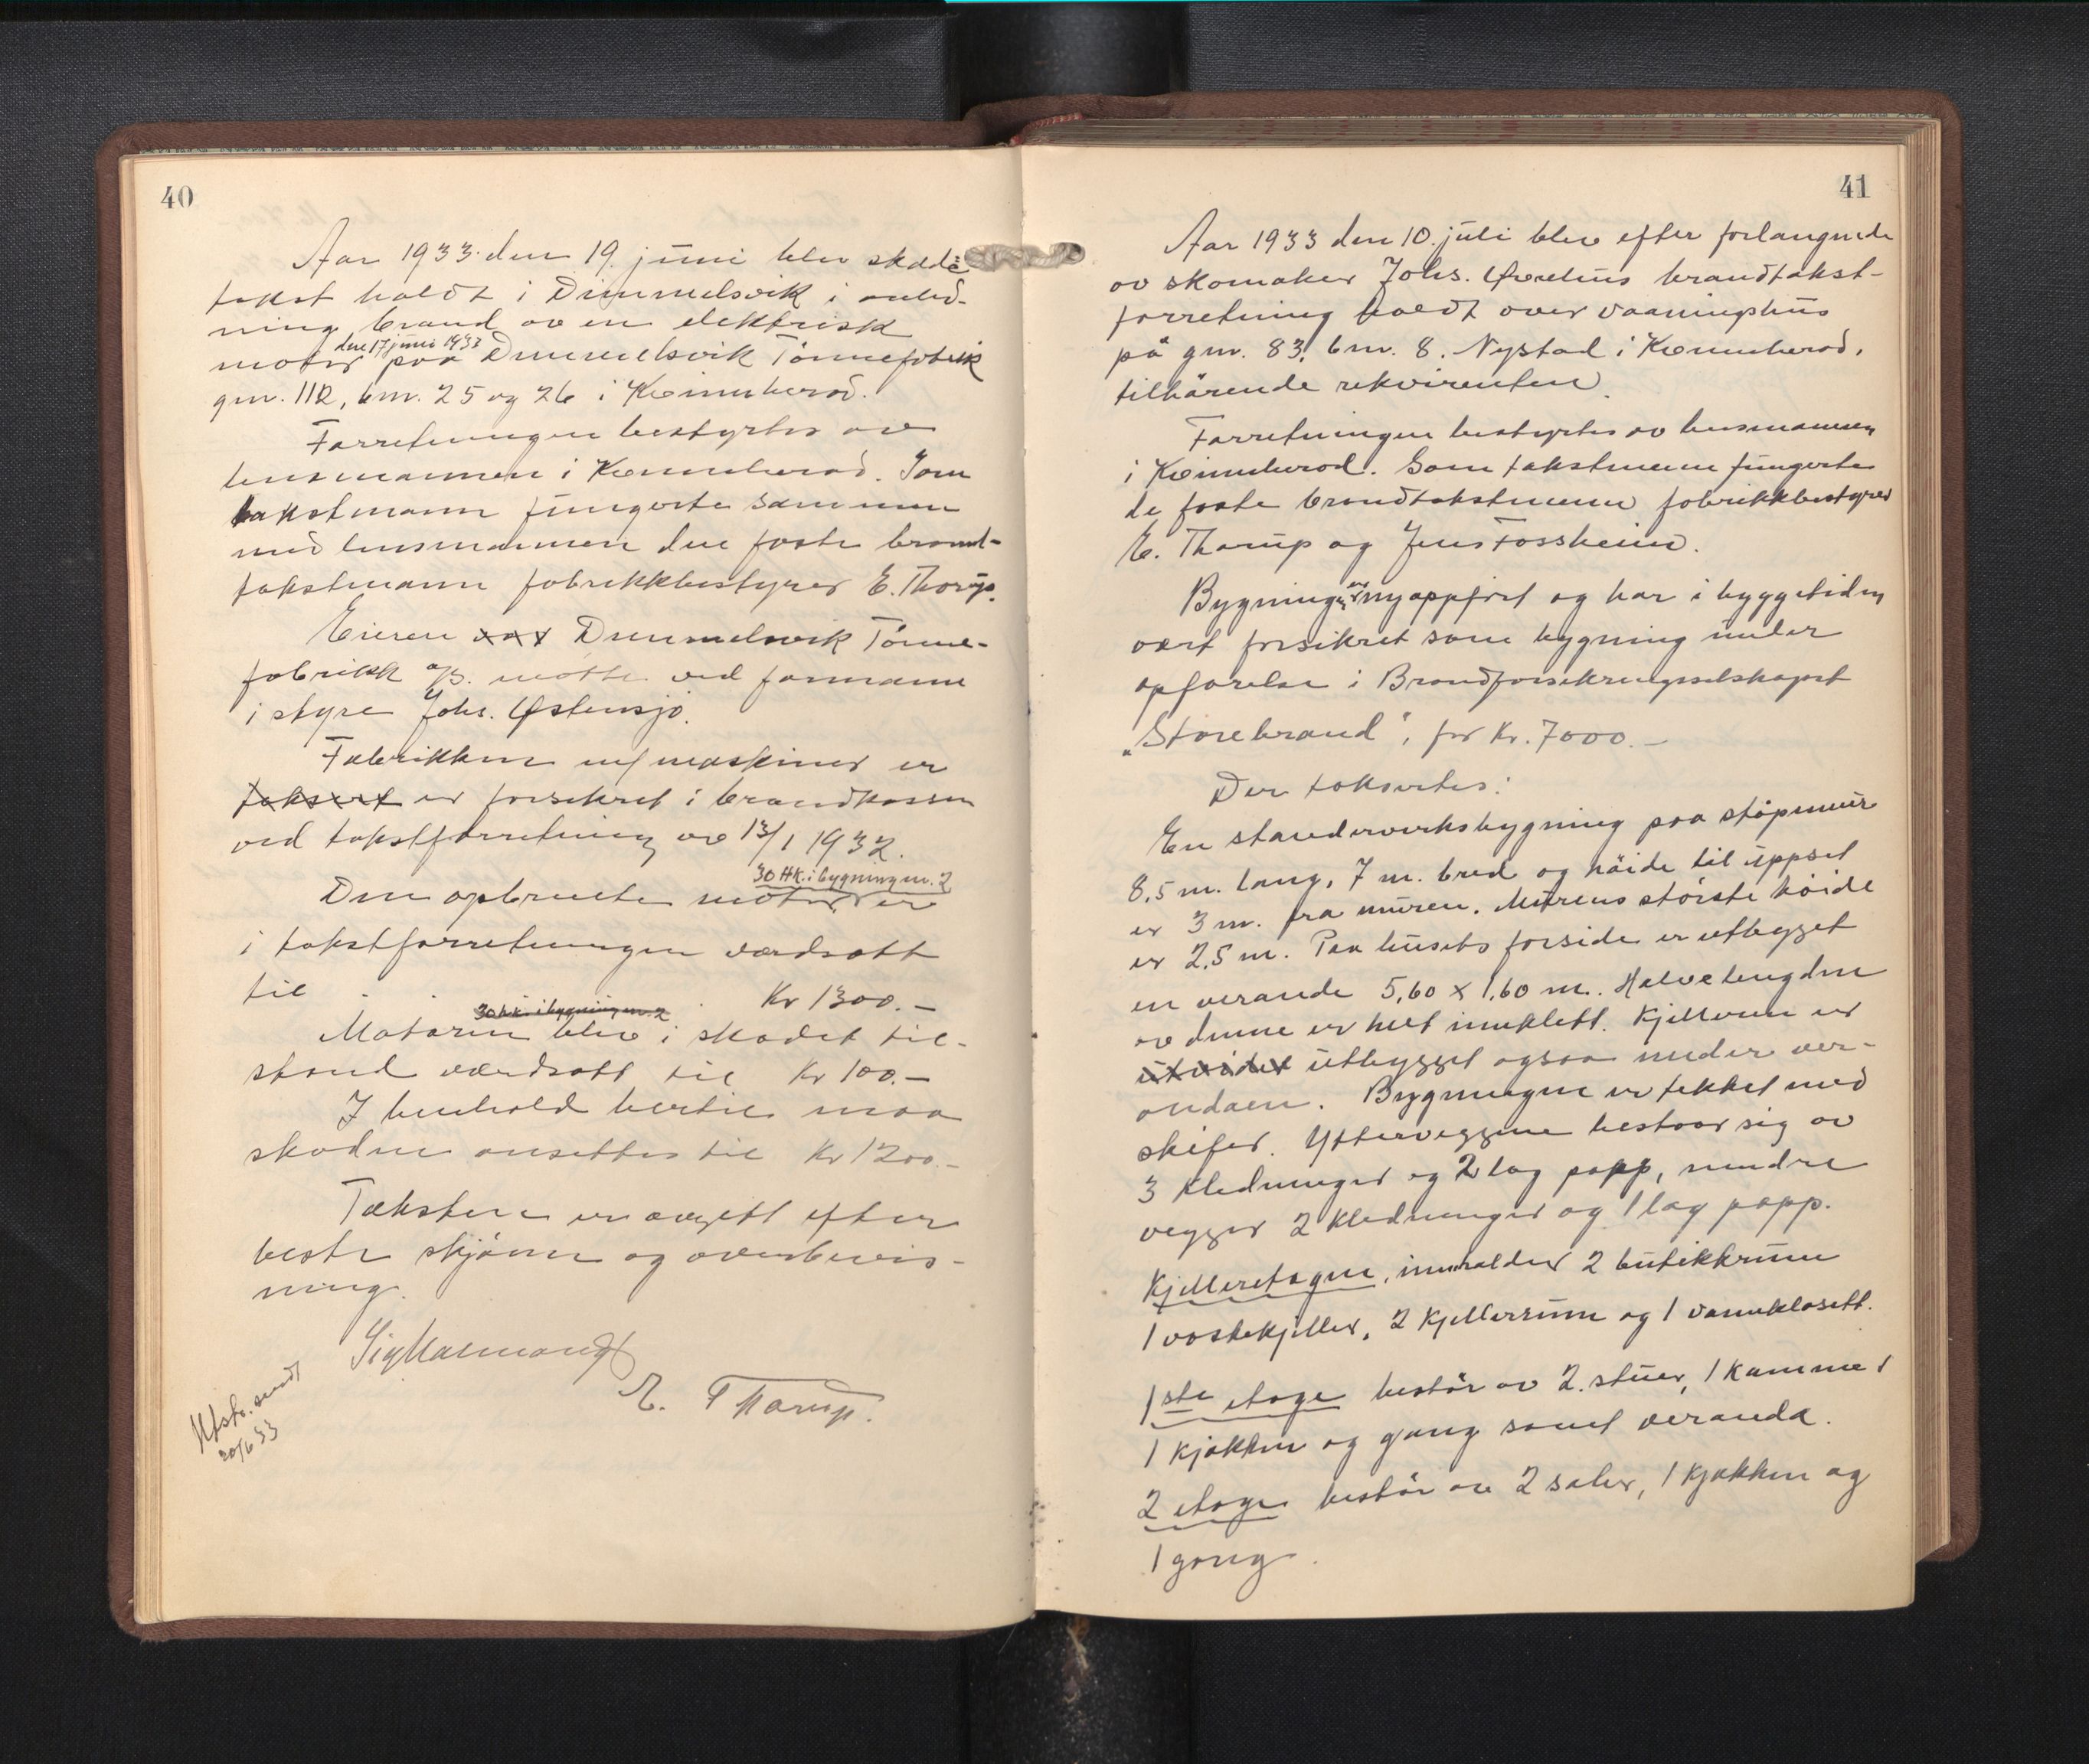 40
Aar 1933 den 19. juni blev skade
takst holdt i Dimmelsvik i anled-
ning brand av en elektrisk
den 17 juni 1933
motor paa Dimmelsvik Tønnefabrik
gnr. 112, bnr. 25 og 26 i Kvinnherad.
Forretningen bestyrtes av
lensmannen i Kvinnherad. Som
takstmann fungerte sammen
med lensmannen den faste brand-
takstmann fabrikkbestyrer E. Thorup.
Eieren var Dimmelsvik Tønne-
fabrikk a/s. møtte ved formann
i styre Johs. Østensjø.
Fabrikken m/ maskiner er
taksert er forsikret i brandkassen
ved takstforretning av 13/1 1932.
30 HK. i bygning nr. 2
Den opbrente motor er
i takstforretningen værdsatt
til . . . Kr 1300.-
30 h.k. i bygning nr. 2
Motoren blev i skadet til-
stand værdsatt til Kr 100.-
I henhold hertil maa
skaden ansettes til Kr 1200.-
Taksten er avgitt efter
beste skjønn og overbevis-
ning.
E. Thorup.
Utskr. sendt
20/6 33
41
Aar 1933 den 10. juli blev efter forlangende
av skomaker Johs. brandtakst-
forretning holdt over vaaningshus
på gnr. 83, bnr. 8. Nystad i Kvinnherad,
tilhørende rekvirenten.
Forretningen bestyrtes av lensmannen
i Kvinnherad. Som takstmenn fungerte
de faste brandtakstmenn fabrikkbestyrer
E. Thorup og Jens Fossheim.
Bygningen er nyoppført og har i byggetiden
vært forsikret som bygning under
opførelse i Brandforsikringsselskapet
"Storebrand", for Kr. 7000.-
Der takseres:
En standerverksbygning paa støpemur
8,5 m. lang, 7 m. bred og høide til uppset
er 3 m. fra muren. Murens største høide
er 2,5 m. Paa husets forside er utbygget
en veranda 5,60 x 1,60 m. Halve lengden
av denne er helt innkledt. Kjelleren er
utvidet utbygget ogsaa under ver-
andaen. Bygningen er tekket med
skifer. Ytterveggene bestaar sig av
3 kledninger og 2 lag papp, mindre
vegger 2 kledninger og 1 lag papp.
Kjelleretagen, inneholder 2 butikkrum
1 vaskekjeller, 2 kjellerrum og 1 vannklosett.
1ste etage består av 2 stuer, 1 kammer
1 kjøkken og gang samt veranda.
2 etage består av 2 saler, 1 kjøkken og
1 gang.